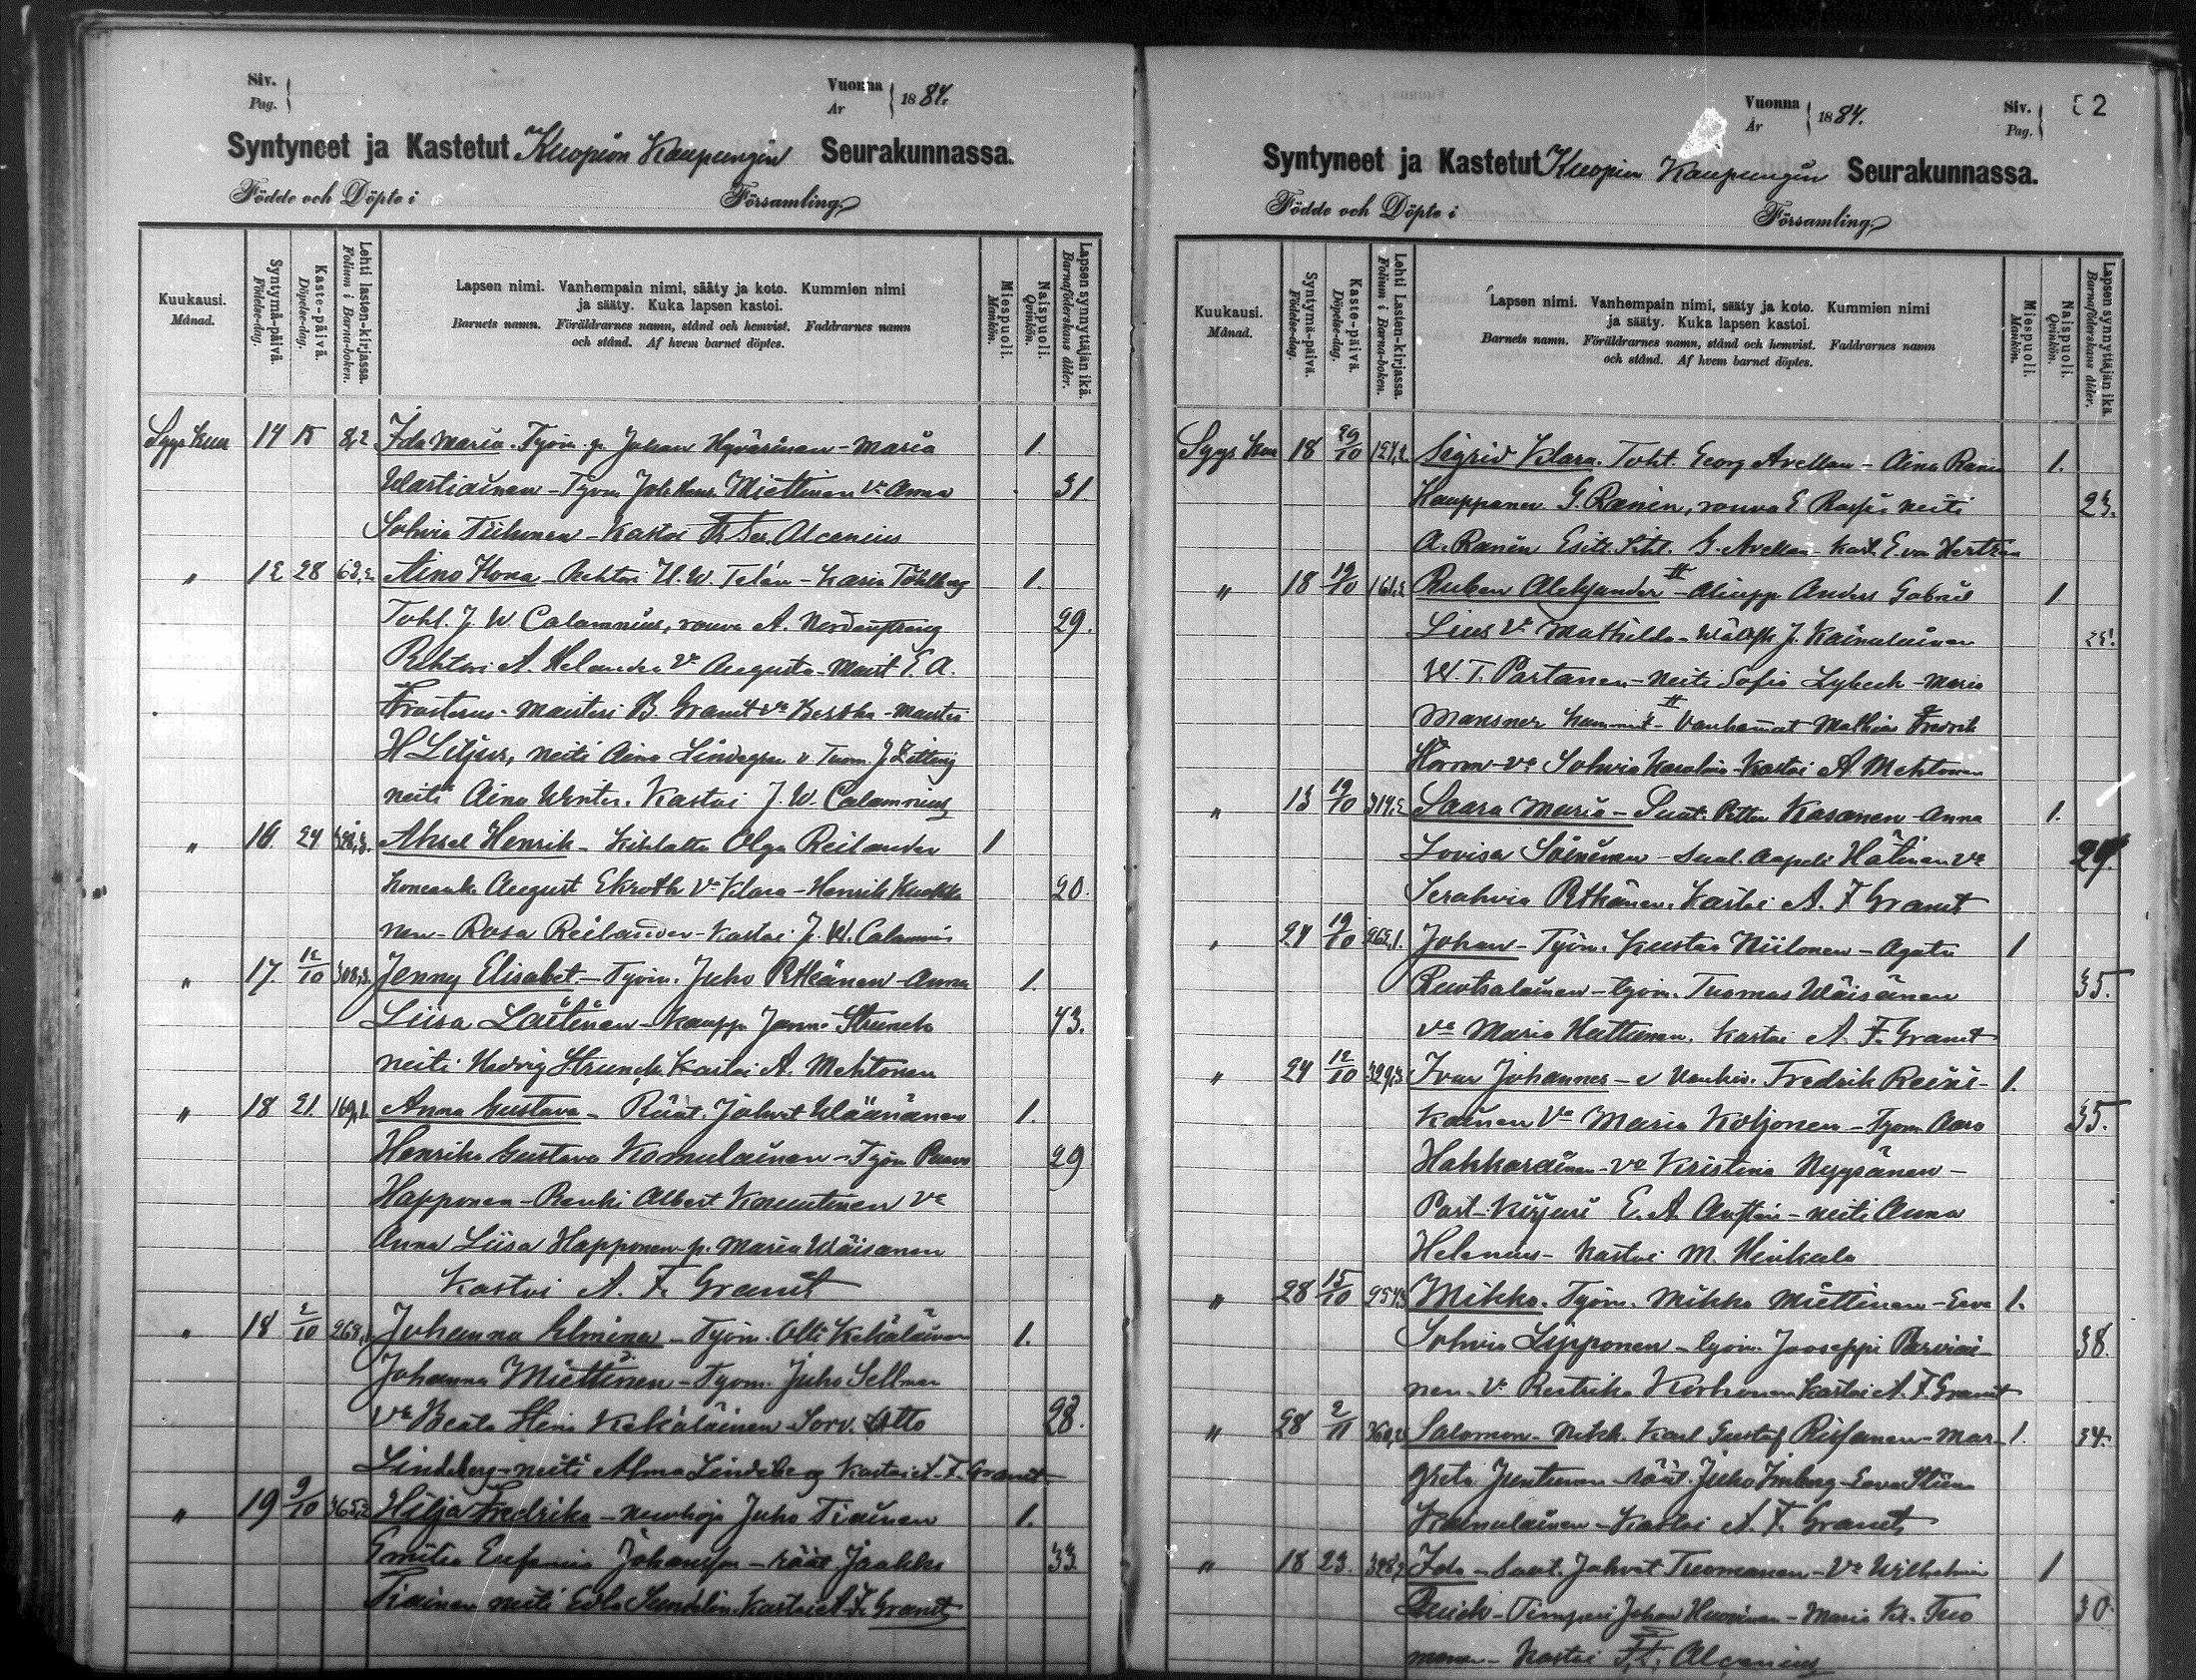 Siv.
Pag.
Vuonna
År
1884.
Syntyneet ja Kastetut Kuopion Kaupungin Seurakunnassa.
Födde och Döpte i Församling.
Kuukausi.
Månad.
Syntymä-päivä.
Födelse-dag.
Kaste-päivä.
Döpelse-dag.
Lehti lasten-kirjassa.
Folium i Barna-boken.
Lapsen nimi. Vanhempain nimi, sääty ja koto. Kummien nimi
ja sääty. Kuka lapsen kastoi.
Barnets namn. Föräldrarnes namn, stånd och hemvist. Faddrarnes namn
och stånd. Af hvem barnet döptes.
Miespuoli.
Mankön.
Naispuoli.
Qvinkön.
Lapsen synnyttäjän ikä.
Barnaföderskans ålder.
Syys Kuu 14 15 Ida Maria. Työm. p. Johan Hyvärinen - Maria 1.
Wartiainen - Työm Joh Miettinen Va Anna 31
Sohvia Tiihonen - Kastoi Alcenius
" 12 28 Aino Ilona - Rehtori Telén - Karin 1.
Toht. J. W. Calamnius, rouva A. Nordenstreng 29.
Rehtori A. Helander Va Augusta - Maist E. A.
Frosterus - Maisteri B. Granit va Bertha - Maisteri
H Liljus, neiti Aina Lindegren J. Zitting
neiti Aina Winter. Kastoi J. W. Calamnius
" 16 24 Aksel Henrik - Olga Reilander 1
August Ekroth Va Klara - Henrik 20.
nen - Rosa Reilander - Kastoi J. W. Calamnius
" 17. 12/10 308,3. Jenny Elisabet - Työm. Juho Pitkänen - Anna 1.
Liisa Laitinen - Kaupp Janne Strunck 43.
neiti Hedvig Strunck Kastoi A. Mehtonen
" 18 21. 169,1. Anna Gustava - Räät. Johvet Wäänänen 1.
Henrika Gustava Komulainen - Työm Paavo 29
Happonen - Renki Albert Va
Anna Liisa Happonen - p. Maria Wäisänen
Kastoi A. F. Granit
" 18 2/10 Johanna Elmina - Työm. Olli Kekäläinen 1.
Johanna Miettinen - Työm. Juho Sellman
Va Beata Stina Kekäläinen - Sorv. Otto 28.
Lindeberg - neiti Alma Lindeberg Kastoi A. F. Granit
" 19 9/10 365,2 Hilja Fredrika - Juho Tiainen 1.
Emilia Eufemia Johansson - räät. Jaakko 33.
Tiainen neiti Edla Sundelin. Kastoi A. F. Granit
Vuonna
År
1884.
Siv.
Pag.
52
Syntyneet ja Kastetut Kuopion Kaupungin Seurakunnassa.
Födde och Döpte i Församling.
Kuukausi.
Månad.
Syntymä-päivä.
Födelse-dag.
Kaste-päivä.
Döpelse-dag.
Lehti Lasten-kirjassa.
Folium i Barna-boken.
Lapsen nimi. Vanhempain nimi, sääty ja koto. Kummien nimi
ja sääty. Kuka lapsen kastoi.
Barnets namn. Föräldrarnes namn, stånd och hemvist. Faddrarnes namn
och stånd. Af hvem barnet döptes.
Miespuoli.
Mankön.
Naispuoli.
Qvinkön.
Lapsen synnyttäjän ikä.
Barnaföderskans ålder.
Syys Kuu 18 29/10 Sigrid Klara. Toht. Georg Avellan - Aina Ranin 1.
Kauppanev G. Ranin, rouva E neiti 23.
A. Ranin G. Avellan - Kast. E. von Hertzen
" 18 19/10 Ruben Aleksander - Aliupp Anders Gabriel 1
Lius Va Mathilda - J. Kainulainen
W. T. Partanen - neiti Sofia Lybeck - Maria
Mansner - Vanhemat Mathias Fredrik
va Sohvia Karolina - Kastoi A Mehtonen
" 13 19/10 Saara Maria - Suut. Petter Kasanen - Anna 1.
Lovisa Soininen - Suut. Aapeli Hätinen va 29.
Serahvia Pitkänen. Kastoi A. F Granit
" 24 19/10 262,1. Johan - Työm. Kustaa Niilonen - Agata 1
Ruotsalainen - työm. Tuomas Wäisänen 35.
va Maria Huttunen. Kastoi A. F. Granit
" 24 12/10 329,3 Ivar Johannes - Fredrik Reini- 1.
kainen Va Maria Koljonen - Työm Aaro 35.
Hakkarainen - va Kristina Nyyssönen -
Post-Kirjuri E. A. - neiti Anna
Helenius - Kastoi M. Hinkula
" 28 15/10 Mikko. Työm. Mikko Miettinen - Eeva 1.
Sohvia Lipponen - työm. Jooseppi Parviai- 38.
nen - Va Reetrika Korhonen Kastoi A. F. Granit
" 28 2/11 Salomon - Nikk. Karl Gustaf Rissanen - Mar- 1. 34.
greta Juntunen - räät. Juho Imberg - Eeva Stiina
Kainulainen - Kastoi A. F. Granit
" 18 23. Ida - Suut. Johvet Tuomanen - Va Wilhelmina 1
Quick - Timperi Johan - Maria Kr. Tuo 30.
manen - Kastoi Alcenius